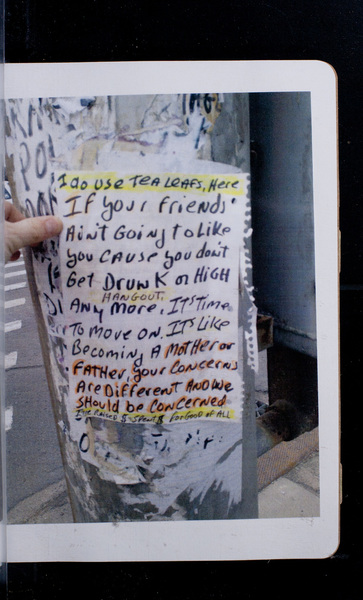 I do use TEA LEAFS, Here
If your friends'
Ain't Going to Like
you CAUSE you don't
Get DRUNK or HIGH
HANGOUT.
Any More, IT'S Time
To MOVE ON. IT'S Like
Becoming A MotHer or
FATHer, your Concerns
Are Different AND We
SHould be ConCerned
FOR GOOD of ALL